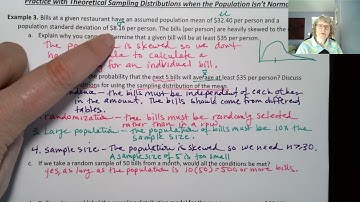 Practice with Theoretical Sampling Distributions when the Population isn't Norma
Example 3. Bills at a given restaurant have an assumed population mean of $32.40 per person and a
population standard deviation of $8.16 per person. The bills (per person) are heavily skewed to the
a. Explain why you can determine that a given bill will be at least $35 per person.
The is skewed so we don't
ha able to calculate a
for an individual bill.
the probability that the next 5 bills will average at least $35 per person? Discuss
for using the sampling distribution of the mean.
the bills must be independent of each other
in the amount. The bills should come from different
tables.
randomization - the bills must be randomly selected
rather than in a row.
3. Large population - the population of bills must be 10x the
sample size.
4. Sample size - The population is skewed so we need n≥30.
A sample size of 5 is too small
c. If we take a random sample of 50 bills from a month, would all the conditions be met?
yes, as long as the population is 10(50)=500 or more bills.